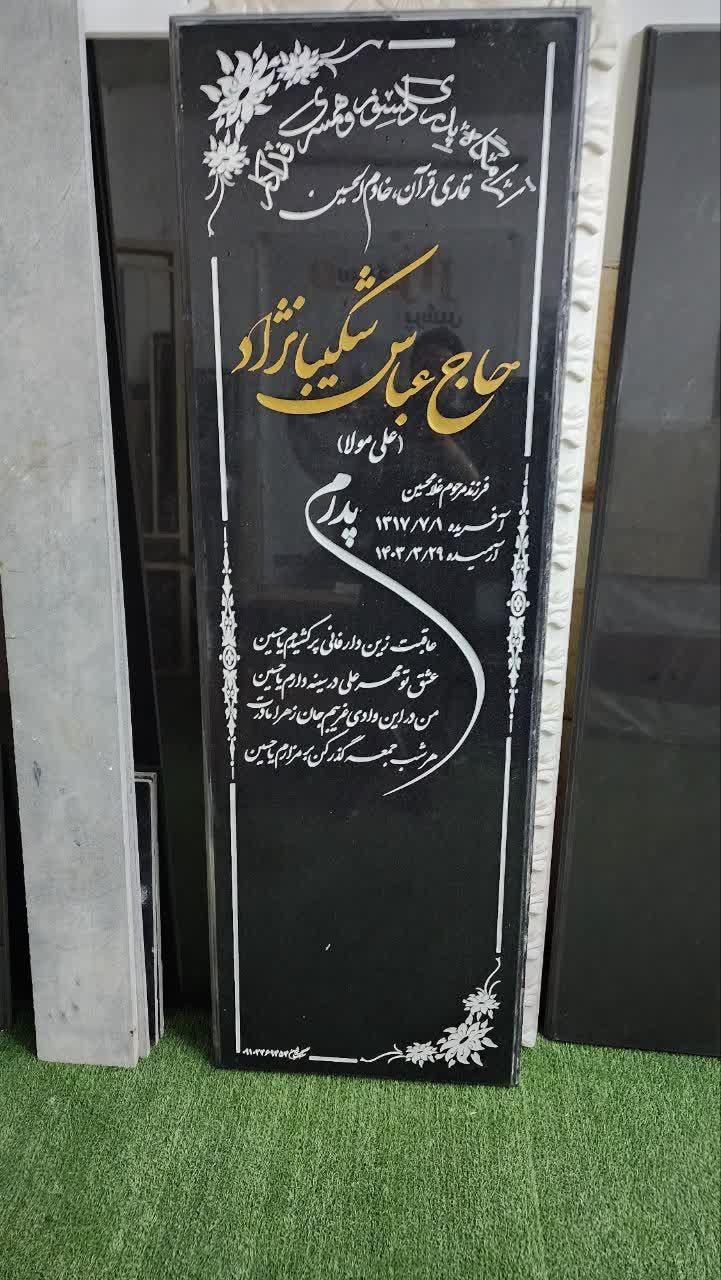 آرامگاه پدری دلسوز و همسری فداکار
قاری قرآن، خادم الحسین
حاج عباس شکیبا نژاد
(علی مولا)
فرزند مرحوم غلامحسین
پدرم
آفریده ۱۳۱۷/۷/۱
آرمیده ۱۴۰۳/۳/۲۹
عاقبت زین دار فانی پر کشیدم یا حسین
عشق تو مهر علی در سینه دارم یا حسین
من در این وادی غریبم جان زهرا مادرت
هر شب جمعه گذر کن بر مزارم یا حسین